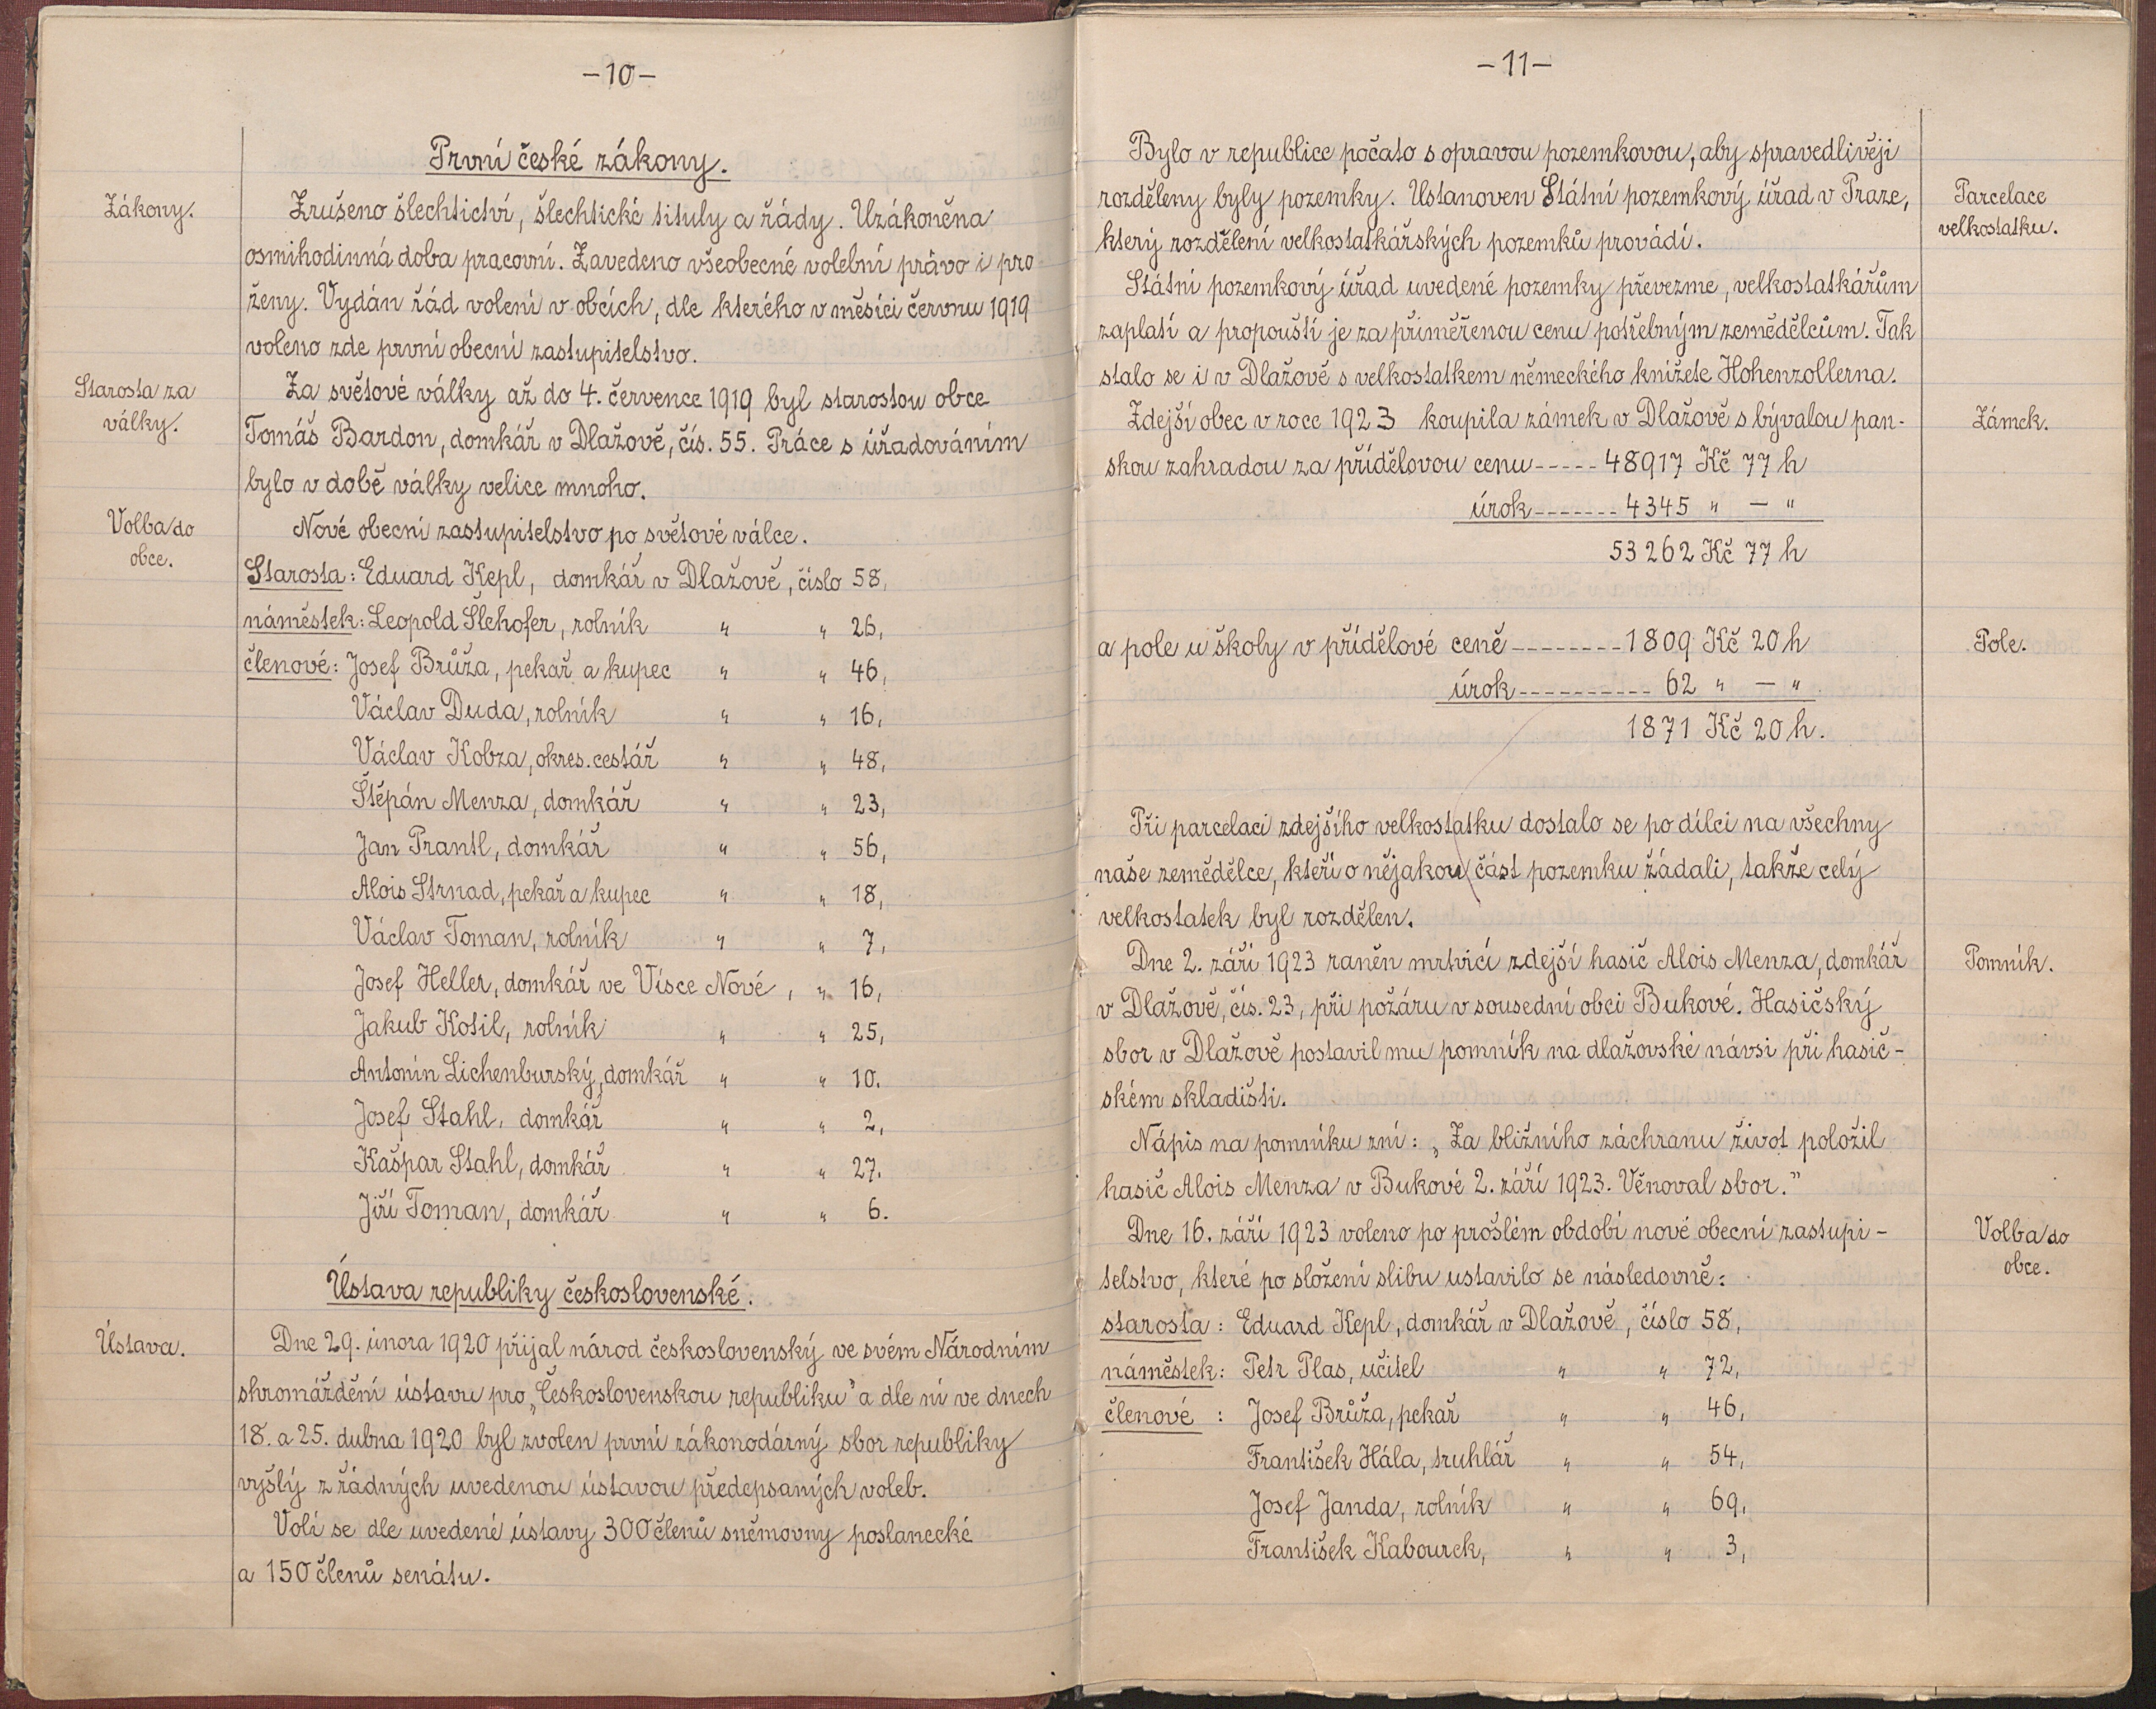 -10-
První české zákony.
Zákony.
Zrušeno šlechtictví, šlechtické tituly a řády. Uzákoněna
osmihodinná doba pracovní. Zavedeno všeobecné volební právo i pro
ženy. Vydán řád volení v obcích, dle kterého v měsíci červnu 1919
voleno zde první obecní zastupitelstvo.
Starosta za
války.
Za světové války až do 4. července 1919 byl starostou obce
Tomáš Bardon, domkář v Dlažově, čís. 55. Práce s úřadováním
bylo v době války velice mnoho.
Volba do
obce.
Nové obecní zastupitelstvo po světové válce.
Starosta: Eduard Kepl, domkář v Dlažově, číslo 58,
náměstek: Leopold Šlehofer, rolník " " 26,
členové: Josef Brůža, pekař a kupec " " 46,
Václav Duda, rolník " " 16,
Václav Kobza, okres. cestář " " 48,
Štěpán Menza, domkář " " 23,
Jan Prantl, domkář " " 56,
Alois Strnad, pekař a kupec " " 18,
Václav Toman, rolník " " 7,
Josef Heller, domkář ve Vísce Nové, " 16,
Jakub Kotil, rolník " " 25,
Antonín Lichenburský, domkář " " 10.
Josef Stahl, domkář " " 2,
Kašpar Stahl, domkář " " 27.
Jiří Toman, domkář " " 6.
Ústava republiky československé.
Ústava.
Dne 29. února 1920 přijal národ československý ve svém Národním
shromáždění ústavu pro „Československou republiku" a dle ní ve dnech
18. a 25. dubna 1920 byl zvolen první zákonodárný sbor republiky
vyšlý z řádných uvedenou ústavou předepsaných voleb.
Volí se dle uvedené ústavy 300 členů sněmovny poslanecké
a 150 členů senátu.
-11-
Bylo v republice počato s opravou pozemkovou, aby spravedlivěji
rozděleny byly pozemky. Ustanoven Státní pozemkový úřad v Praze,
který rozdělení velkostatkářských pozemků provádí.
Parcelace
velkostatku.
Státní pozemkový úřad uvedené pozemky převezme, velkostatkářům
zaplatí a propouští je za přiměřenou cenu potřebným zemědělcům. Tak
stalo se i v Dlažově s velkostatkem německého knížete Hohenzollerna.
Zdejší obec v roce 1923 koupila zámek v Dlažově s bývalou pan-
Zámek.
skou zahradou za přídělovou cenu ----- 48917 Kč 77 h
úrok ------- 4345 " — "
53262 Kč 77 h
a pole u školy v přídělové ceně -------- 1809 Kč 20 h
Pole.
úrok ---------- 62 " — "
1871 Kč 20 h.
Při parcelaci zdejšího velkostatku dostalo se po dílci na všechny
naše zemědělce, kteří o nějakou část pozemku žádali, takže celý
velkostatek byl rozdělen.
Dne 2. září 1923 raněn mrtvicí zdejší hasič Alois Menza, domkář
Pomník.
v Dlažově, čís. 23, při požáru v sousední obci Bukové. Hasičský
sbor v Dlažově postavil mu pomník na dlažovské návsi při hasič-
ském skladišti.
Nápis na pomníku zní: „Za bližního záchranu život položil
hasič Alois Menza v Bukové 2. září 1923. Věnoval sbor."
Dne 16. září 1923 voleno po prošlém období nové obecní zastupi-
Volba do
obce.
telstvo, které po složení slibu ustavilo se následovně:
starosta: Eduard Kepl, domkář v Dlažově, číslo 58,
náměstek: Petr Plas, učitel " " 72,
členové : Josef Brůža, pekař " " 46,
František Hála, truhlář " " 54,
Josef Janda, rolník " " 69,
František Kabourek, " " 3,